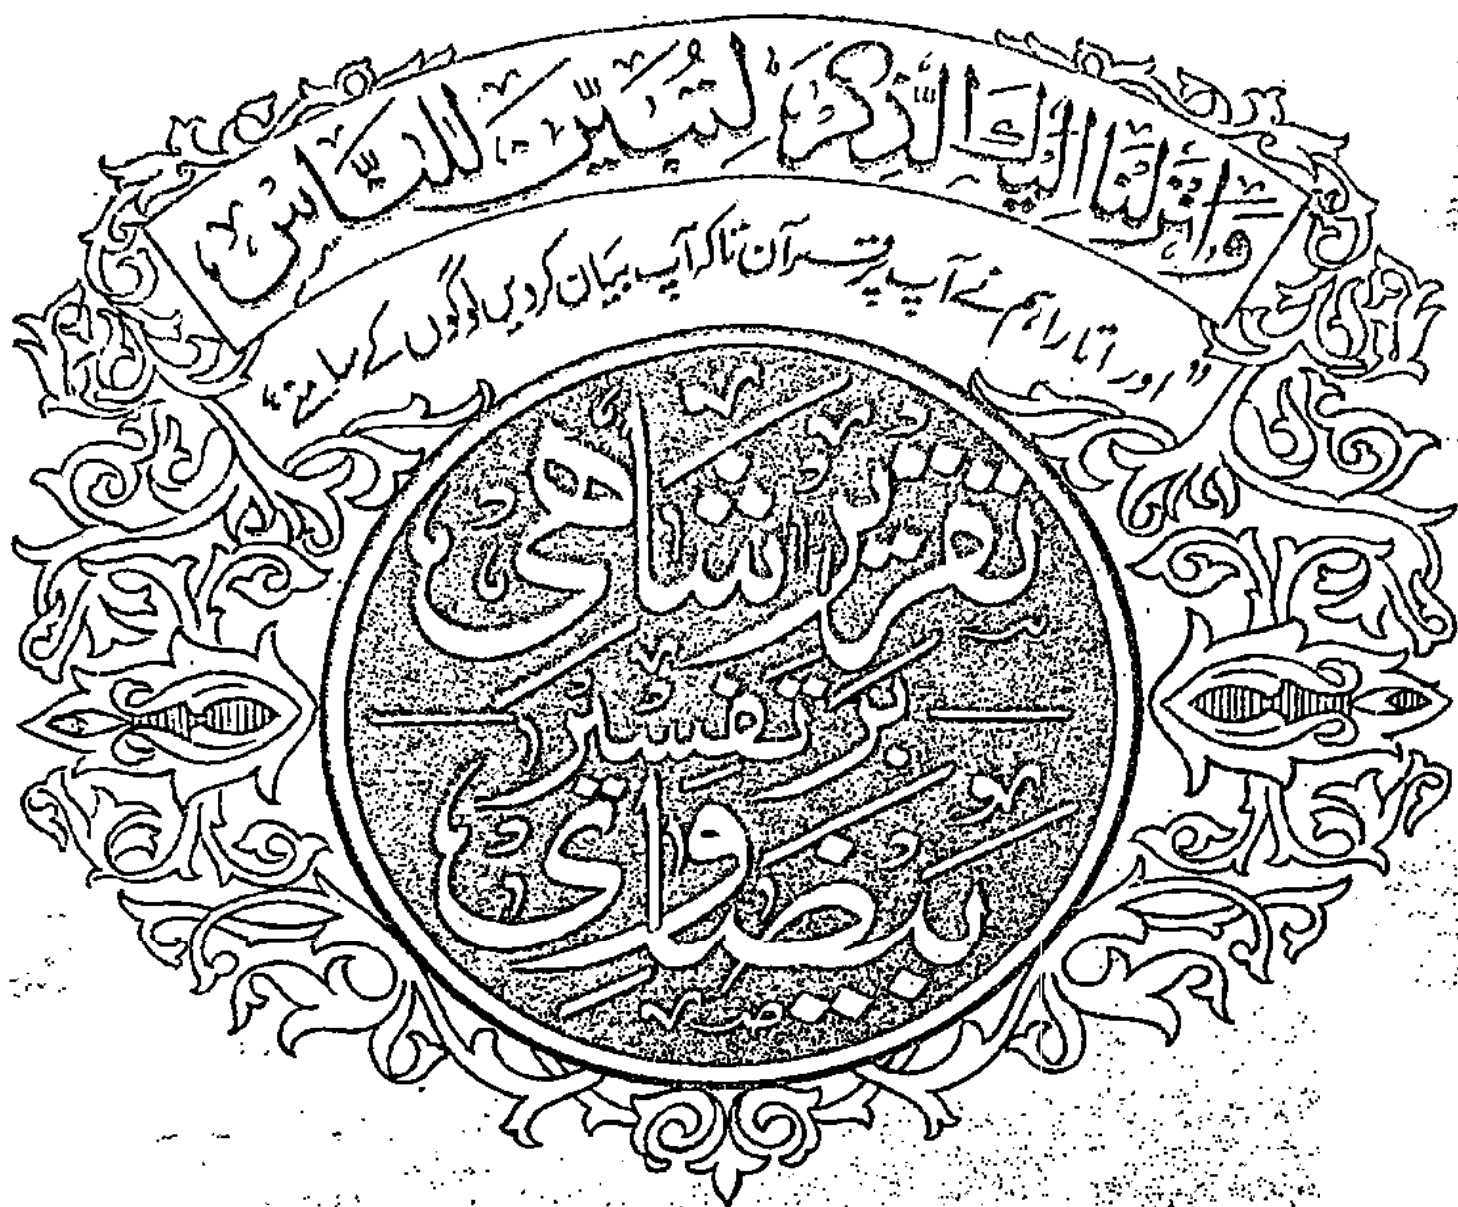 وَاَنْزَلْنَا اِلَیْكَ الذِّكْرَ لِتُبَیِّنَ لِلنَّاسِ
”اور اتارا ہم نے آپ پر قرآن تاکہ آپ بیان کردیں لوگوں کے سامنے“
تقریر شاھی
بر تفسیر
بیضاوی